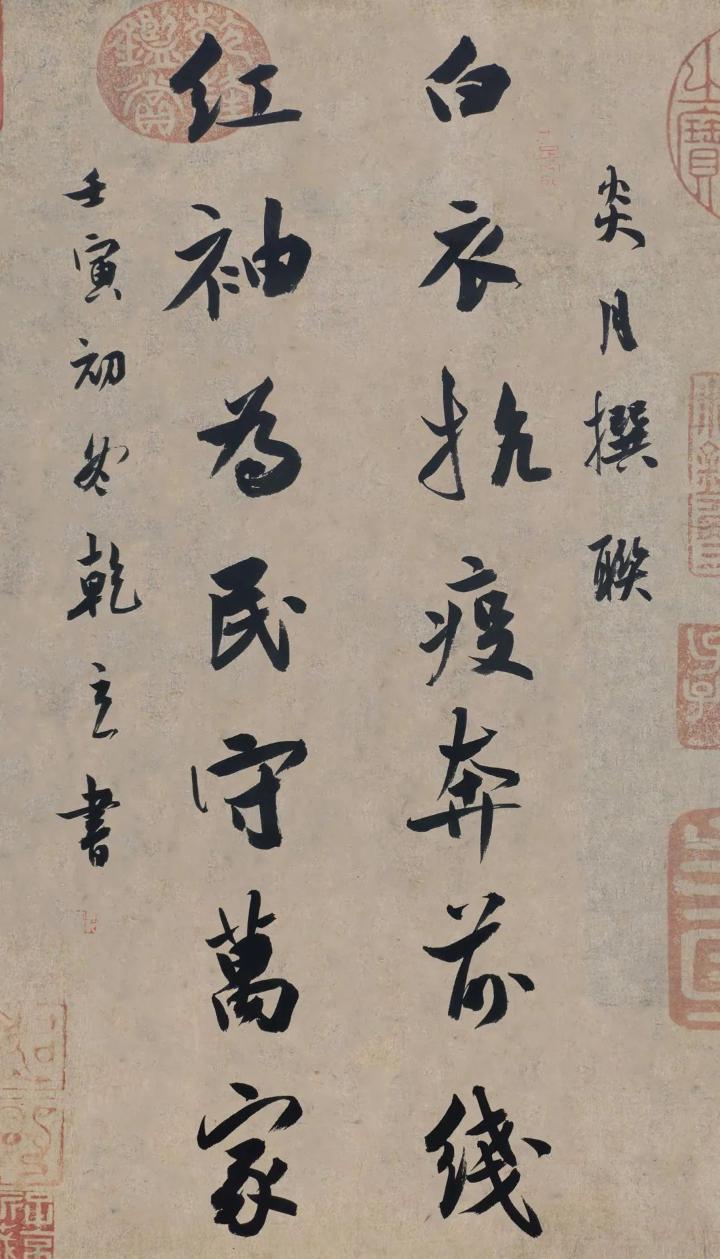 炎月撰聯
白衣抗疫奔前线
红袖为民守萬家
壬寅初冬乾立書